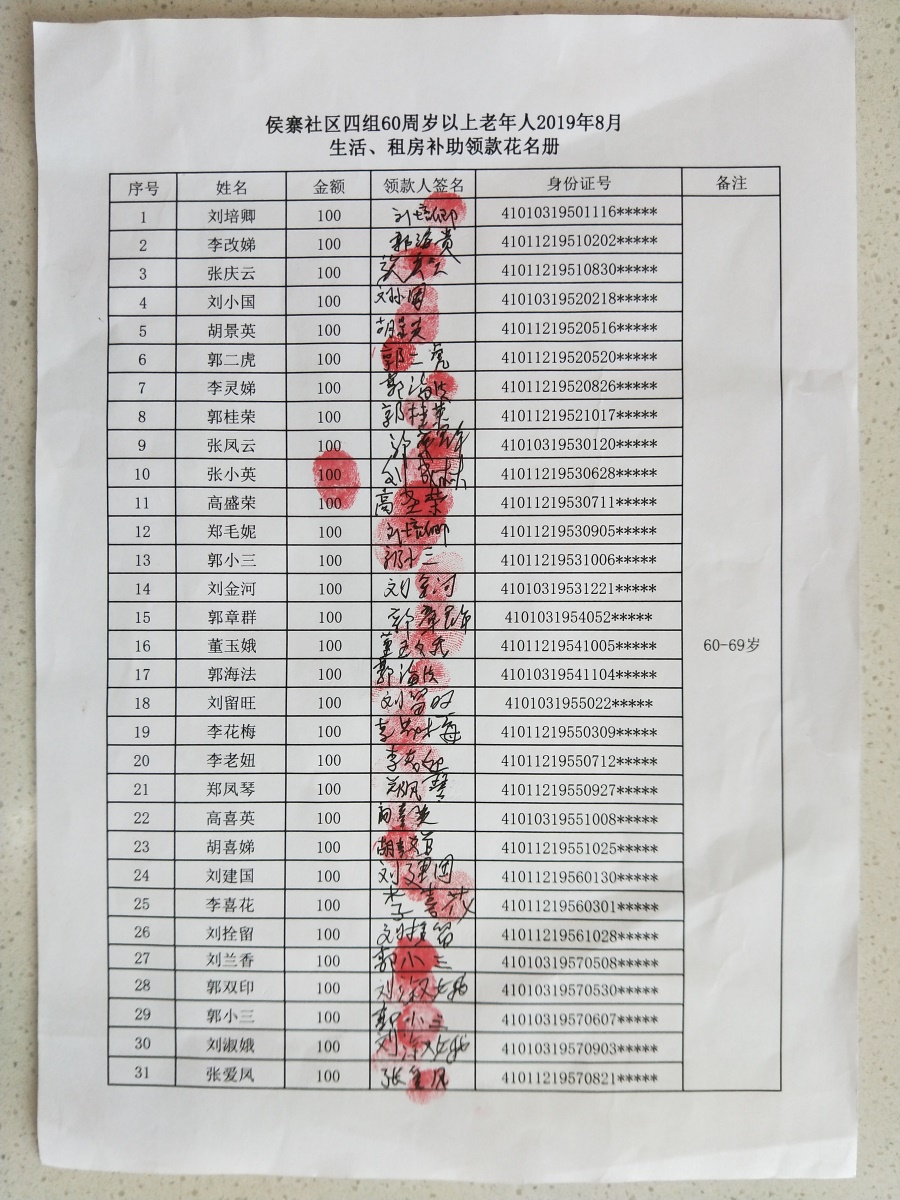 侯寨社区四组60周岁以上老年人2019年8月
生活、租房补助领款花名册
序号 姓名 金额 领款人签名 身份证号 备注
1 刘培卿 100 刘培卿 41010319501116*****
2 李改娣 100 41011219510202*****
3 张庆云 100 41011219510830*****
4 刘小国 100 刘小国 41010319520218*****
5 胡景英 100 胡景英 41011219520516*****
6 郭二虎 100 郭二虎 41011219520520*****
7 李灵娣 100 郭海法 41011219520826*****
8 郭桂荣 100 郭桂荣 41011219521017*****
9 张凤云 100 41010319530120*****
10 张小英 100 41011219530628*****
11 高盛荣 100 高盛荣 41010319530711*****
12 郑毛妮 100 刘培卿 41011219530905*****
13 郭小三 100 郭小三 41011219531006*****
14 刘金河 100 刘金河 41010319531221*****
15 郭章群 100 郭章群 4101031954052*****
16 董玉娥 100 董玉娥 41011219541005***** 60-69岁
17 郭海法 100 郭海法 41010319541104*****
18 刘留旺 100 刘留旺 4101031955022*****
19 李花梅 100 李花梅 41011219550309*****
20 李老妞 100 李老妞 41011219550712*****
21 郑凤琴 100 郑凤琴 41011219550927*****
22 高喜英 100 高喜英 41010319551008*****
23 胡喜娣 100 41011219551025*****
24 刘建国 100 刘建国 41011219560130*****
25 李喜花 100 李喜花 41011219560301*****
26 刘拴留 100 刘拴留 41011219561028*****
27 刘兰香 100 郭小三 41010319570508*****
28 郭双印 100 刘淑娥 41010319570530*****
29 郭小三 100 郭小三 41010319570607*****
30 刘淑娥 100 刘淑娥 41010319570903*****
31 张爱凤 100 张爱凤 41011219570821*****